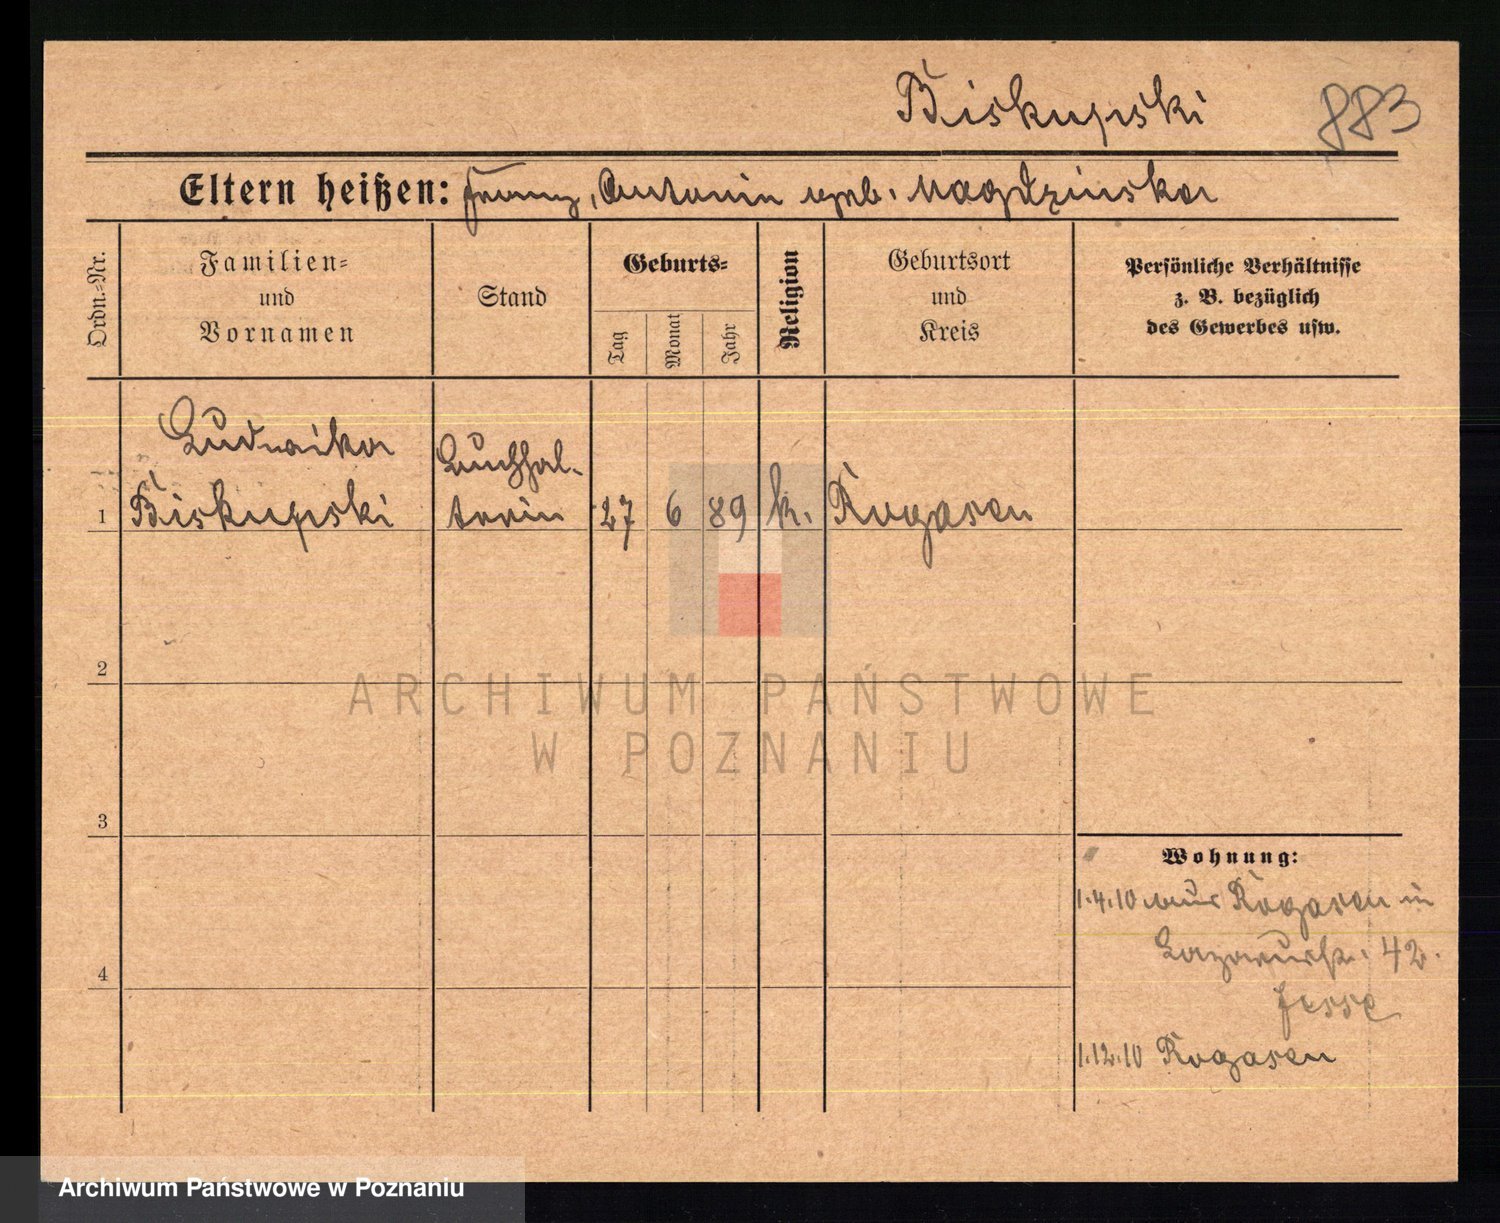 Biskupski
883
Eltern heißen: Franz, Antonie geb. Magdzinska
Ordn.-Nr.
Familien-
und
Vornamen
Stand
Geburts-
Tag
Monat
Jahr
Religion
Geburtsort
und
Kreis
Persönliche Verhältnisse
z. B. bezüglich
des Gewerbes usw.
Ludwika
Buchhal-
1 Biskupski terin 27 6 89 k. Rogasen
2
ARCHIWUM PAŃSTWOWE
W POZNANIU
3
Wohnung:
1.4.10 aus Rogasen in
Lazarusstr. 42.
Jesse
4
1.12.10 Rogasen
Archiwum Państwowe w Poznaniu